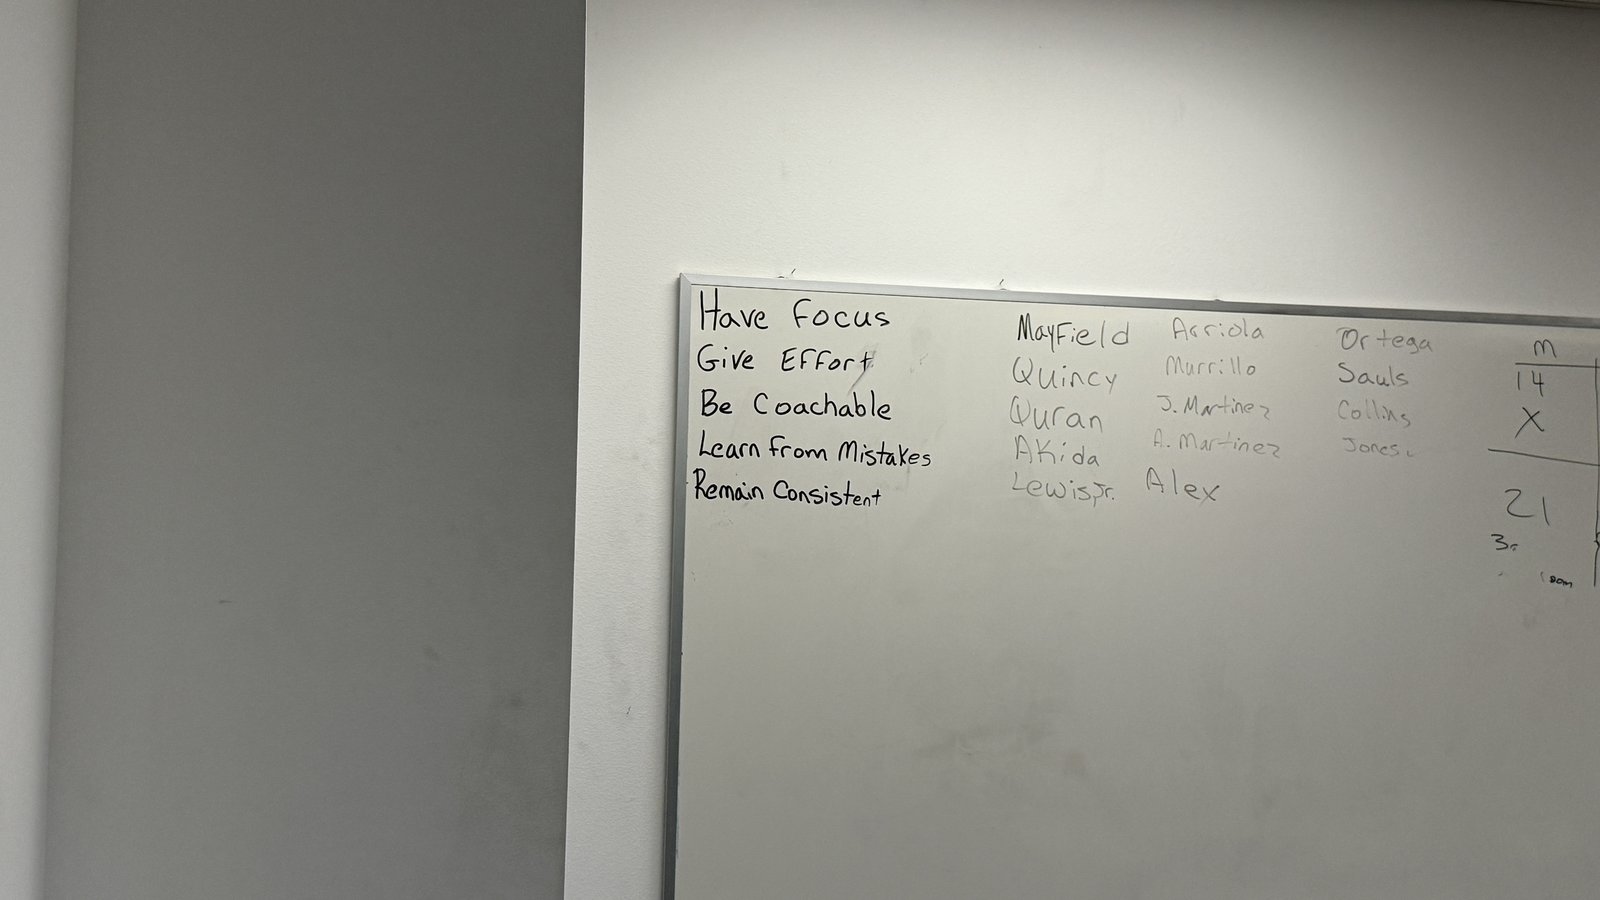 Have Focus
Give Effort
Be Coachable
Learn from Mistakes
Remain Consistent
Mayfield
Quincy
Quran
Akida
Lewis Jr.
Arriola
Murrillo
J. Martinez
A. Martinez
Alex
Ortega
Sauls
Collins
Jones
M
14
X
21